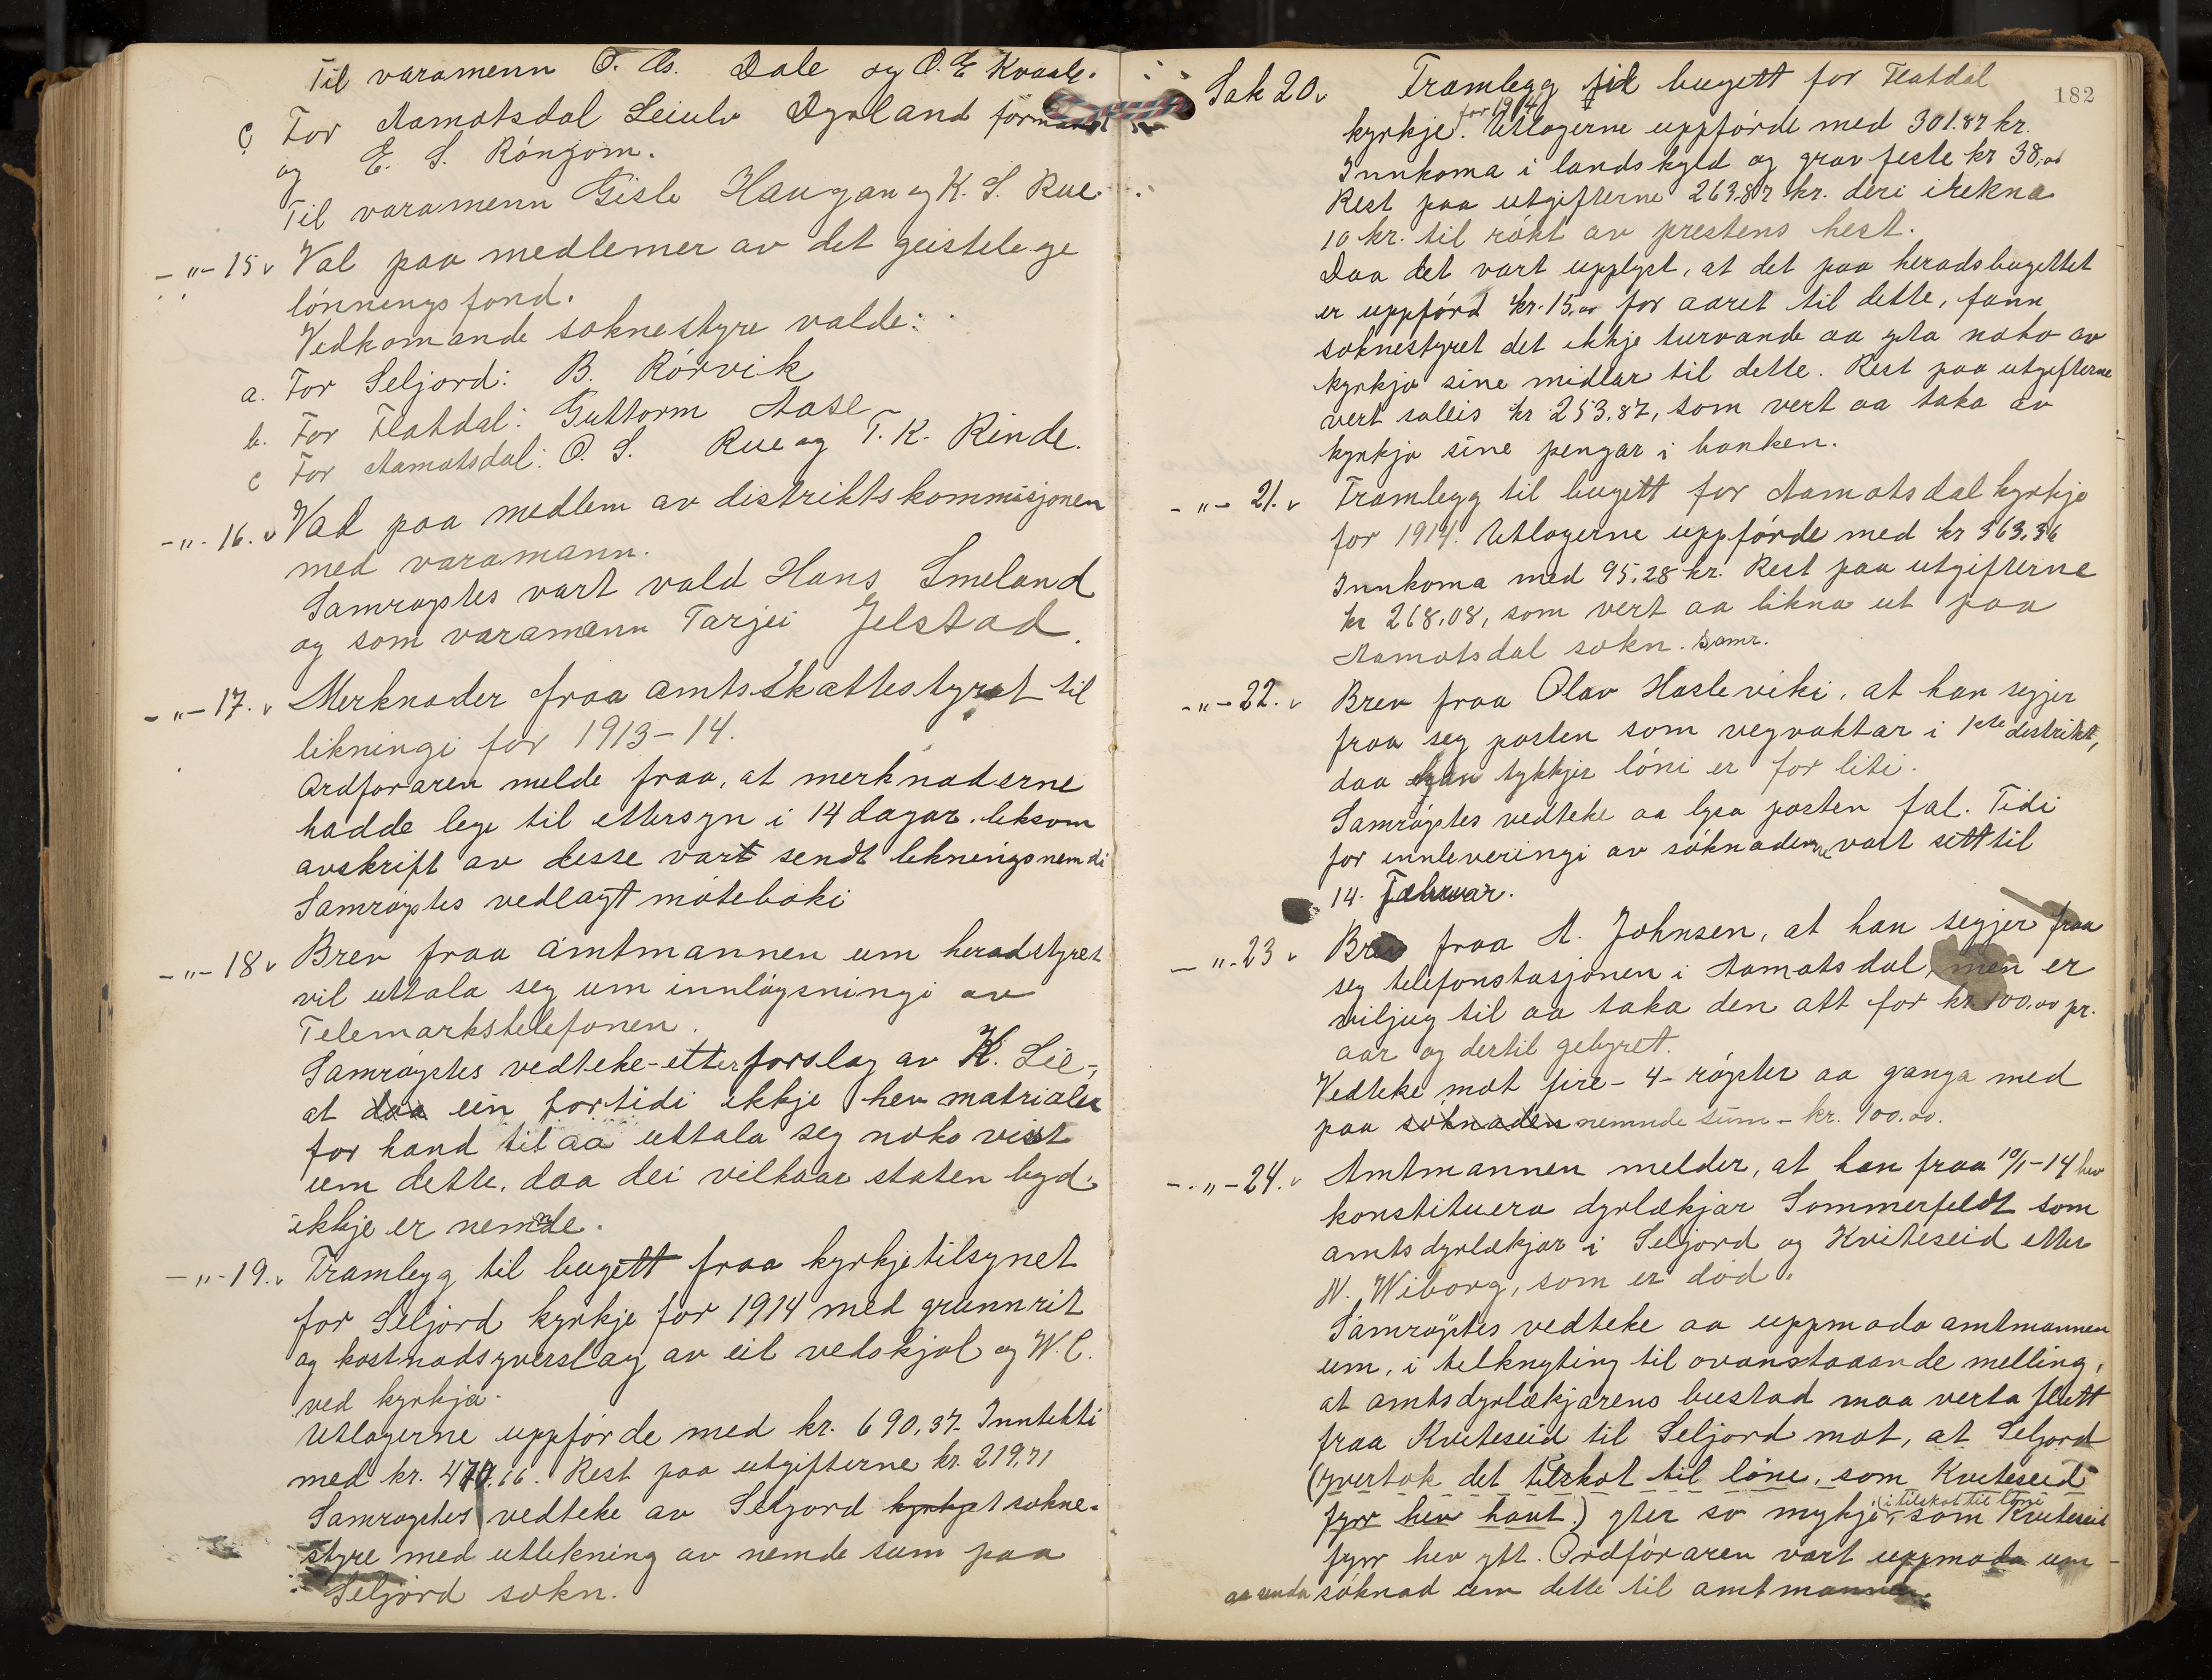 Til varamenn O. As. Dale og O. E. Kvaale.
c For Aamotsdal Leiulv Dyrland formann
og E. S. Róngom.
Til varamenn Gisle Haugan og K. S. Rue.
-"- 15 v Val paa medlemer av det geistelege
lónningsfond.
Vedkomande soknestyre valde:
a. For Seljord: B. Rórvik
b. For Flatdal: Guttorm Aase
c For Aamotsdal: O. S. Rue og T. K. Rinde.
-"- 16. v Val paa medlem av distriktskommisjonen
med varamann.
Samróystes vart vald Hans Smeland
og som varamann Tarjei Jelstad.
-"- 17. v Merknader fraa amtsskattestyret til
likningi for 1913-14.
Ordforaren melde fraa, at merknaderne
hadde lege til ettersyn i 14 dagar. liksom
avskrift av desse vart sendt likningsnemdi
Samróystes vedlagt móteboki
-"- 18 v Brev fraa amtmannen um heradstyret
vil uttala seg um innlóysningi av
Telemarkstelefonen.
Samróystes vedteke - etter forslag av K. Lie -,
at daa ein fortidi ikkje hev matrialer
for hand til aa uttala seg noko visst
um dette, daa dei vilkaar staten byd,
ikkje er nemnde.
-"- 19. v Framlegg til bugett fraa kyrkjetilsynet
for Seljord kyrkje for 1914 med grunnrit
og kostnadsyverslag av eit vedskjol og W.C.
ved kyrkja.
Utlogerne uppfórde med kr. 690,37. Inntekti
med kr. 470,66. Rest paa utgifterne kr. 219,71
Samroystes vedteke av Seljord kyrkjet sokne-
styre med utlikning av nemde sum paa
Seljord sokn.
182
Sak 20 v Framlegg til bugett for Flatdal
kyrkje. for 1914 Utlogerne uppfórde med 301.87 kr.
Innkoma i landskyld og gravfeste kr 38,00
Rest paa utgifterne 263,87 kr. deri irekna
10 kr. til rókt av prestens hest.
Daa det vart upplyst, at det paa heradsbugettet
er uppfórd kr. 15,00 for aaret til dette, fann
soknestyret det ikkje turvande aa yta noko av
kyrkja sine midlar til dette. Rest paa utgifterne
vert soleis kr 253,87, som vert aa taka av
kyrkja sine pengar i banken.
-"- 21. v Framlegg til bugett for Aamotsdal kyrkje
for 1914. Utlogerne uppfórde med kr 363,36
Innkoma med 95,28 kr. Rest paa utgifterne
kr 268,08, som vert aa likna ut paa
Aamotsdal sokn. Samr.
-"- 22. v Brev fraa Olav Hasleviki, at han segjer
fraa seg posten som vegvaktar i 1ste distrikt,
daa han tykkjer lóni er for liti.
Samróystes vedteke aa lysa posten fal. Tidi
for innleveringi av sóknaderne vart sett til
14. Februar.
-"- 23 v Brev fraa A. Johnsen, at han segjer fraa
seg telefonstasjonen i Aamotsdal, men er
viljug til aa taka den att for kr 100,00 pr.
aar og dertil gebyret.
Vedteke mot fire - 4 - róyster aa ganga med
paa sóknaden nemnde sum - kr. 100.00.
-"- 24. v Amtmannen melder, at han fraa 10/1-14 hev
konstituera dyrlækjar Sommerfeldt som
amtsdyrlækjar i Seljord og Kviteseid etter
N. Wiborg, som er dód.
Samróystes vedteke aa uppmoda amtmannen
um, i tilknyting til ovanstaaande melling,
at amtsdyrlækjarens bustad maa verta flutt
fraa Kviteseid til Seljord mot, at Seljord
(yvertok det tilskot til lóne, som Kviteseid
fyrr hev havt.) yter so mykje, (i tilskot til lóni som Kviteseid
fyrr hev ytt. Ordfóraren vart uppmoda um
aa senda sóknad um dette til amtmannen.